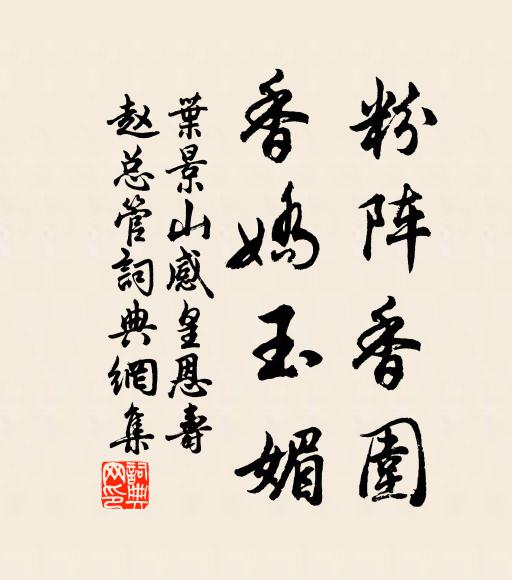 粉阵香围
香娇玉媚
葉景山感皇恩壽
赵总管詞典網集
詞典网印